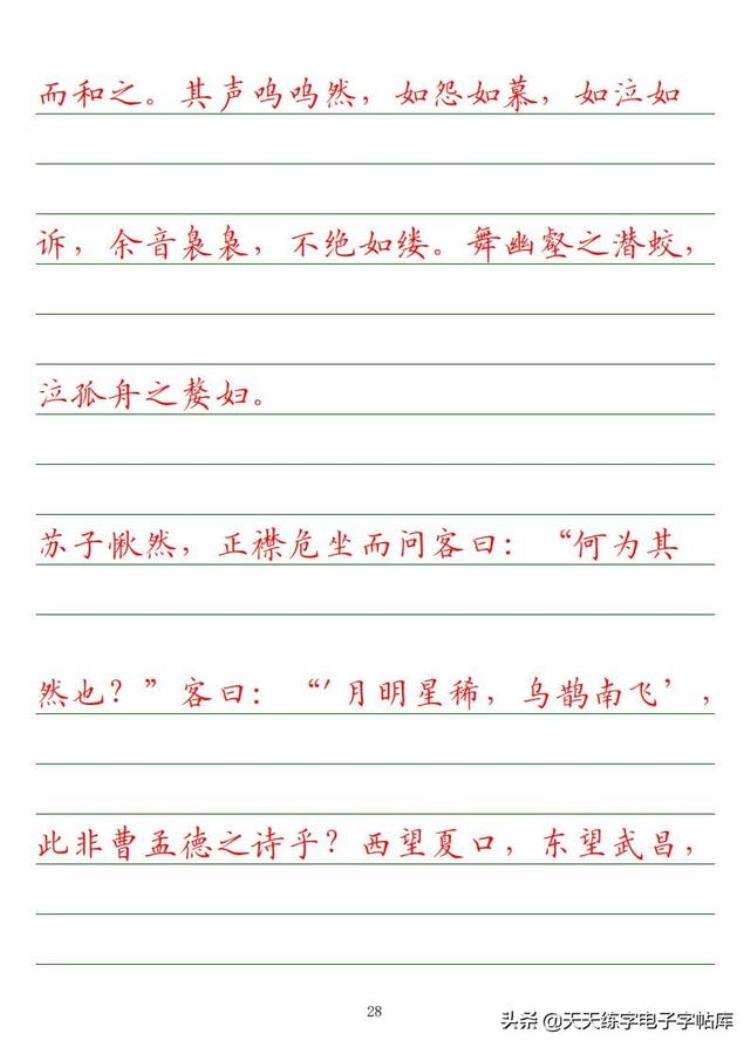 而和之。其声呜呜然，如怨如慕，如泣如
诉，余音袅袅，不绝如缕。舞幽壑之潜蛟，
泣孤舟之嫠妇。
苏子愀然，正襟危坐而问客曰：“何为其
然也？”客曰：“‘月明星稀，乌鹊南飞’，
此非曹孟德之诗乎？西望夏口，东望武昌，
28
头条 @天天练字电子字帖库